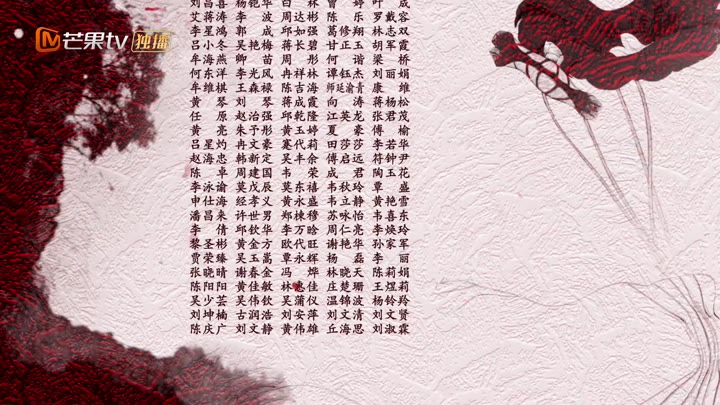 芒果tv 独播
刘昌喜 杨铠华 白林 曾婷 叶成
艾蒋涛 李波 周达彬 陈乐 罗戴容
李星鸿 郭成 邱如强 葛修翔 林志双
吕小冬 吴艳梅 蒋长碧 甘正玉 胡军霞
牟海燕 卿苗 周彤 何谐 梁桥
何东洋 李光凤 冉祥林 谭钰杰 刘丽娟
牟维棋 王森禄 陈吉海 师延渝青 康维
黄琴 刘琴 蒋成霞 向涛 蒋杨松
任原 赵治强 邱乾隆 江英龙 张君茂
黄亮 朱予彤 黄玉婷 夏豪 傅榆
吕星灼 冉文豪 蹇代莉 田莎莎 李若华
赵海忠 韩新定 吴丰余 傅启远 符钟尹
陈卓 周建国 韦荣 成君 陶玉花
李泳谕 莫戊辰 莫东禧 韦秋玲 覃盛
申仕海 经孝义 黄永盛 韦立静 黄艳雪
潘昌来 许世男 郑栋穆 苏咏怡 韦喜东
李倩 邱钦华 李万晗 周仁亮 李焕玲
黎圣彬 黄金方 欧代旺 谢艳华 孙家军
贾荣臻 吴玉嵩 覃永辉 杨磊 李丽
张晓晴 谢春金 冯烨 林晓天 陈莉娟
陈阳阳 黄佳敏 林惠佳 庄楚珊 王煜莉
吴少芸 吴伟钦 吴蒲仪 温锦波 杨铃羚
刘坤楠 古润浩 刘安萍 刘文清 刘文贤
陈庆广 刘文静 黄伟雄 丘海思 刘淑霖